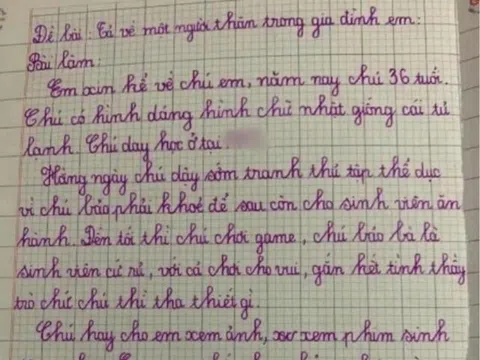 Đề bài: Tả về một người thân trong gia đình em:
Bài làm:
Em xin kể về chú em, năm nay chú 36 tuổi.
Chú có hình dáng hình chữ nhật giống cái tủ
lạnh. Chú dạy học ở tại
Hằng ngày chú dậy sớm tranh thủ tập thể dục
vì chú bảo phải khoẻ để sau còn cho sinh viên ăn
hành. Đến tối thì chú chơi game, chú bảo là là
sinh viên cứ rủ, với cả chơi cho vui, gắn kết tình thầy
trò chứ chú thì tha thiết gì.
Chú hay cho em xem ảnh, xơ xem phim sinh